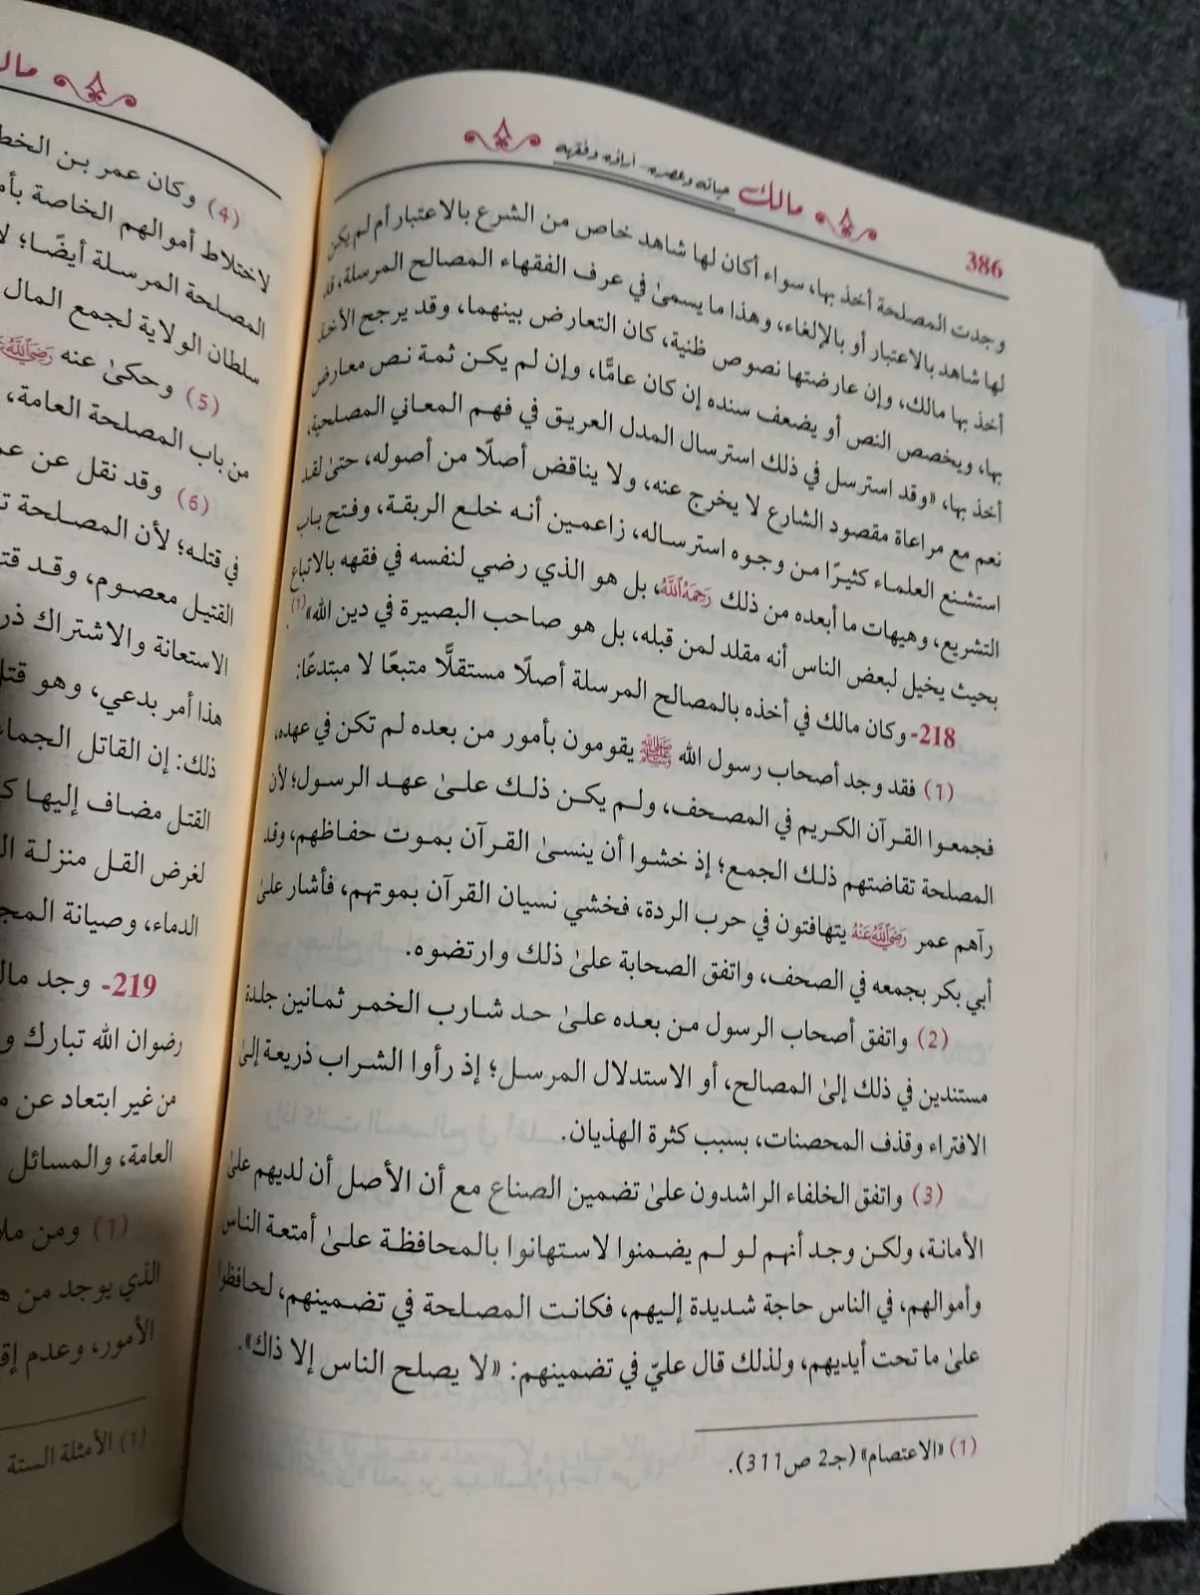 386
مالك حياته وعصره - آراؤه وفقهه
وجدت المصلحة أخذ بها، سواء أكان لها شاهد خاص من الشرع بالاعتبار أم لم يكن
لها شاهد بالاعتبار أو بالإلغاء، وهذا ما يسمىٰ في عرف الفقهاء المصالح المرسلة، قد
أخذ بها مالك، وإن عارضتها نصوص ظنية، كان التعارض بينهما، وقد يرجح الأخذ
بها، ويخصص النص أو يضعف سنده إن كان عامًّا، وإن لم يكن ثمة نص معارض
أخذ بها، «وقد استرسل في ذلك استرسال المدل العريق في فهم المعاني المصلحية،
نعم مع مراعاة مقصود الشارع لا يخرج عنه، ولا يناقض أصلًا من أصوله، حتىٰ لقد
استشنع العلماء كثيرًا من وجوه استرساله، زاعمين أنه خلع الربقة، وفتح باب
التشريع، وهيهات ما أبعده من ذلك رَحِمَهُ اللَّهُ، بل هو الذي رضي لنفسه في فقهه بالاتباع
بحيث يخيل لبعض الناس أنه مقلد لمن قبله، بل هو صاحب البصيرة في دين الله»(1).
218- وكان مالك في أخذه بالمصالح المرسلة أصلًا مستقلًّا متبعًا لا مبتدعًا:
(1) فقد وجد أصحاب رسول الله ﷺ يقومون بأمور من بعده لم تكن في عهده،
فجمعوا القرآن الكريم في المصحف، ولم يكن ذلك علىٰ عهد الرسول؛ لأن
المصلحة تقاضتهم ذلك الجمع؛ إذ خشوا أن ينسىٰ القرآن بموت حفاظهم، وقد
رآهم عمر رَضِيَ اللَّهُ عَنْهُ يتهافتون في حرب الردة، فخشي نسيان القرآن بموتهم، فأشار علىٰ
أبي بكر بجمعه في الصحف، واتفق الصحابة علىٰ ذلك وارتضوه.
(2) واتفق أصحاب الرسول من بعده علىٰ حد شارب الخمر ثمانين جلدة
مستندين في ذلك إلىٰ المصالح، أو الاستدلال المرسل؛ إذ رأوا الشراب ذريعة إلىٰ
الافتراء وقذف المحصنات، بسبب كثرة الهذيان.
(3) واتفق الخلفاء الراشدون علىٰ تضمين الصناع مع أن الأصل أن لديهم علىٰ
الأمانة، ولكن وجد أنهم لو لم يضمنوا لاستهانوا بالمحافظة علىٰ أمتعة الناس
وأموالهم، في الناس حاجة شديدة إليهم، فكانت المصلحة في تضمينهم، لحافظوا
علىٰ ما تحت أيديهم، ولذلك قال عليّ في تضمينهم: «لا يصلح الناس إلا ذاك».
(1) «الاعتصام» (جـ2 ص311).
(4) وكان عمر بن
لاختلاط أموالهم الخاصة
المصلحة المرسلة أيضًا؛
سلطان الولاية لجمع المال
(5) وحكىٰ عنه
من باب المصلحة العامة،
(6) وقد نقل عن
في قتله؛ لأن المصلحة
القتيل معصوم، وقد
الاستعانة والاشتراك
هذا أمر بدعي، وهو
ذلك: إن القاتل
القتل مضاف إليها
لغرض القل منزلة
الدماء، وصيانة
219- وجد
رضوان الله تبارك
من غير ابتعاد عن
العامة، والمسائل
(1) ومن
الذي يوجد من
الأمور، وعدم
(1) الأمثلة الستة